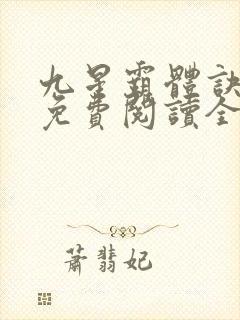 九星霸體訣
免費閱讀全
蕭翡妃